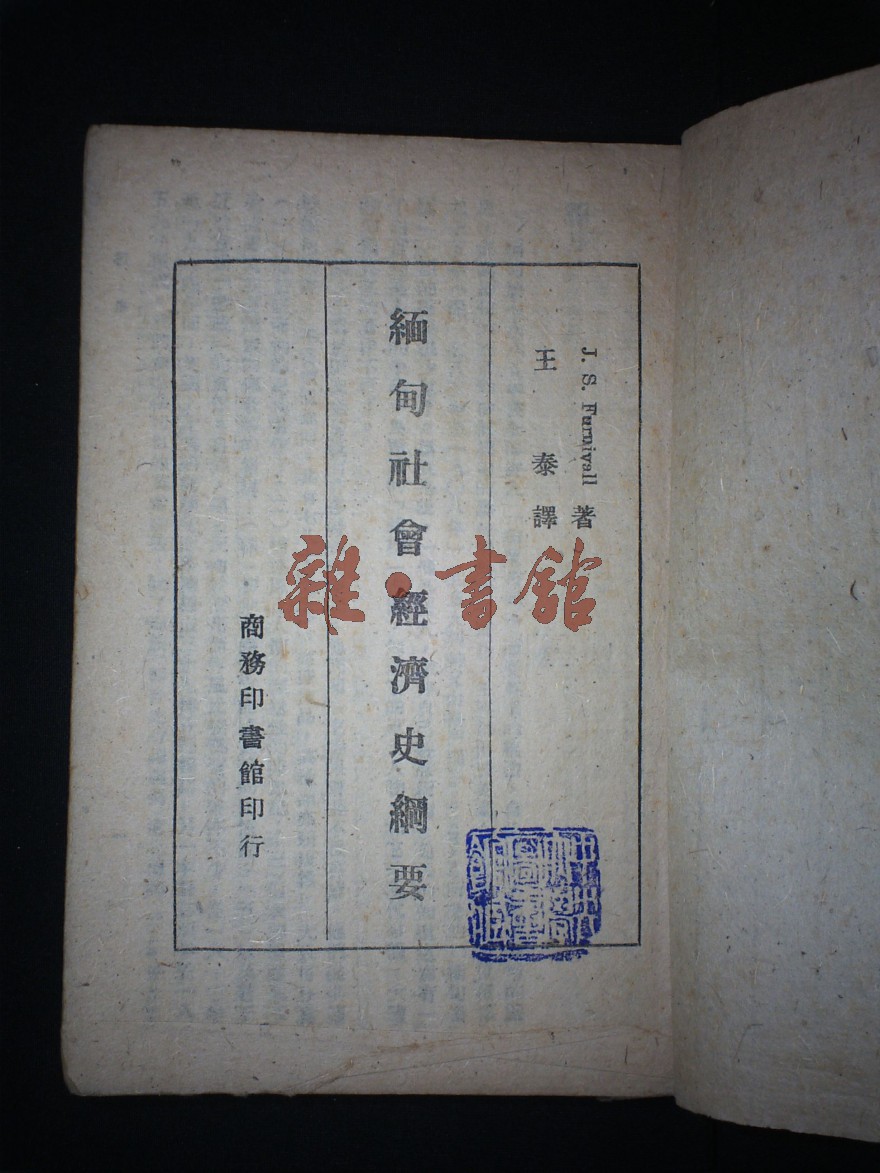 J. S. Furnivall 著
王泰譯
緬甸社會經濟史綱要
商務印書館印行
雜·書館